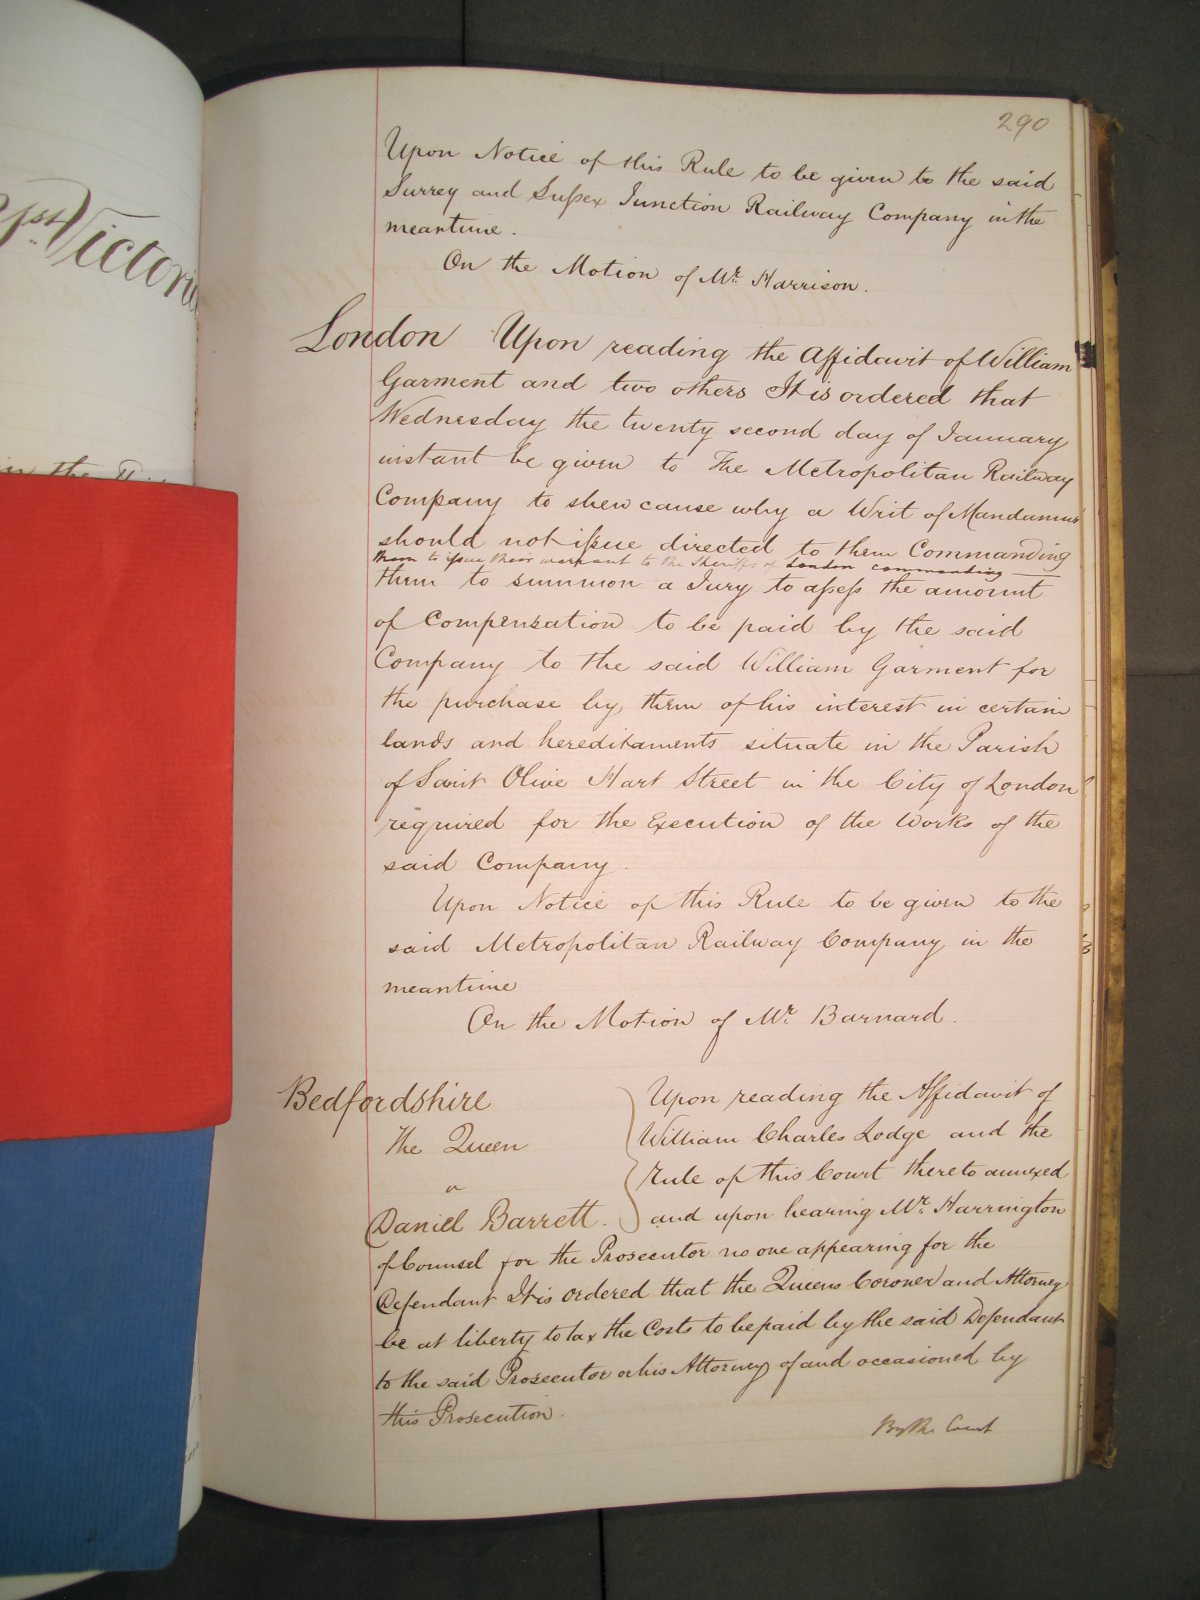 290
Upon Notice of this Rule to be given to the said
Surrey and Sussex Junction Railway Company in the
meantime.
On the Motion of Mr. Harrison.
London Upon reading the Affidavit of William
Garment and two others It is ordered that
Wednesday the twenty second day of January
instant be given to The Metropolitan Railway
Company to shew cause why a Writ of Mandamus
should not issue directed to them Commanding
them to issue their warrant to the Sheriffs of London commanding
them to summon a Jury to assess the amount
of Compensation to be paid by the said
Company to the said William Garment for
the purchase by them of his interest in certain
lands and hereditaments situate in the Parish
of Saint Olive Hart Street in the City of London
required for the Execution of the Works of the
said Company.
Upon Notice of this Rule to be given to the
said Metropolitan Railway Company in the
meantime
On the Motion of Mr. Barnard.
Bedfordshire
The Queen
v
Daniel Barrett.
Upon reading the Affidavit of
William Charles Lodge and the
Rule of this Court thereto annexed
and upon hearing Mr. Harrington
of Counsel for the Prosecutor no one appearing for the
Defendant It is ordered that the Queens Coroner and Attorney
be at liberty to tax the Costs to be paid by the said Defendant
to the said Prosecutor or his Attorney of and occasioned by
this Prosecution.
By the Court
Victoria
in the